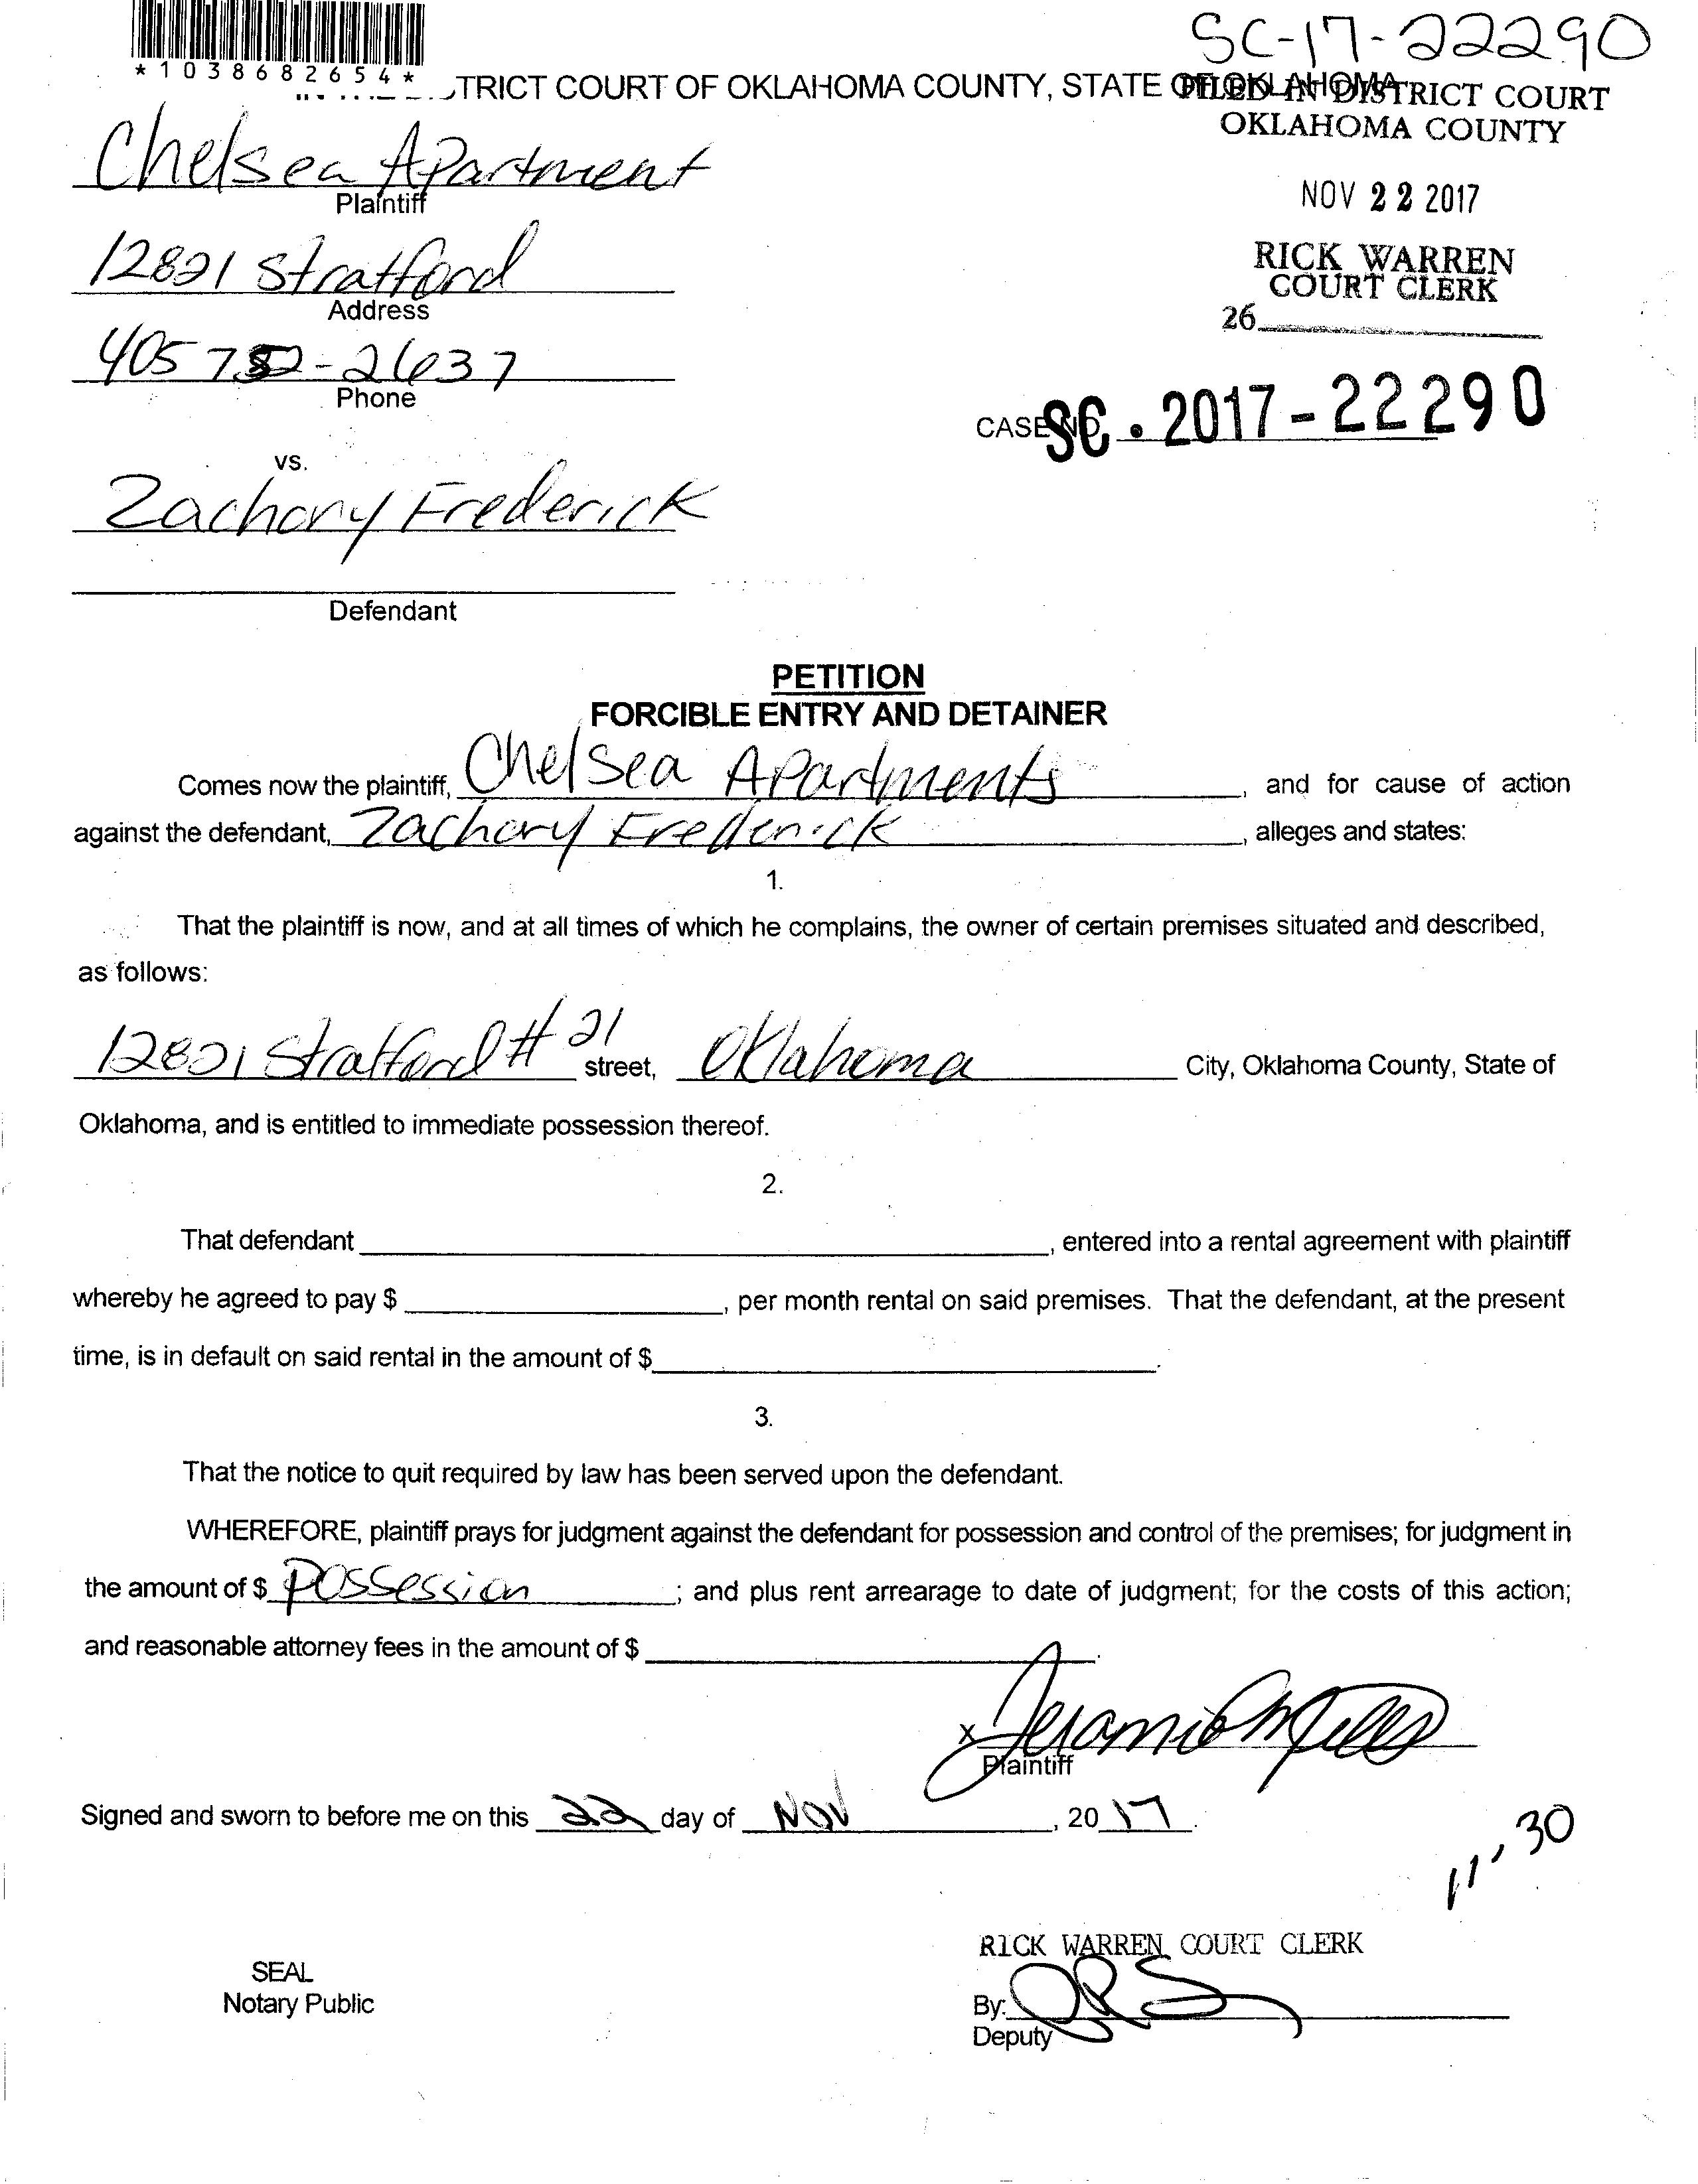 SC-17-22290
*1038682654*
TRICT COURT OF OKLAHOMA COUNTY, STATE OF OKLAHOMA
FILED IN DISTRICT COURT
OKLAHOMA COUNTY
Chelsea Apartment
Plaintiff
NOV 22 2017
12821 Stratford
Address
RICK WARREN
COURT CLERK
26
405 752-2637
Phone
CASE NO. SC. 2017-22290
vs.
Zachary Frederick
Defendant
PETITION
FORCIBLE ENTRY AND DETAINER
Comes now the plaintiff, Chelsea Apartments, and for cause of action
against the defendant, Zachary Frederick, alleges and states:
1.
That the plaintiff is now, and at all times of which he complains, the owner of certain premises situated and described,
as follows:
12821 Stratford # 21 street, Oklahoma City, Oklahoma County, State of
Oklahoma, and is entitled to immediate possession thereof.
2.
That defendant , entered into a rental agreement with plaintiff
whereby he agreed to pay $ , per month rental on said premises. That the defendant, at the present
time, is in default on said rental in the amount of $ .
3.
That the notice to quit required by law has been served upon the defendant.
WHEREFORE, plaintiff prays for judgment against the defendant for possession and control of the premises; for judgment in
the amount of $ Possession ; and plus rent arrearage to date of judgment; for the costs of this action;
and reasonable attorney fees in the amount of $ .
x
Plaintiff
Signed and sworn to before me on this 22 day of NOV , 20 17.
11,30
RICK WARREN COURT CLERK
SEAL
Notary Public
By:
Deputy